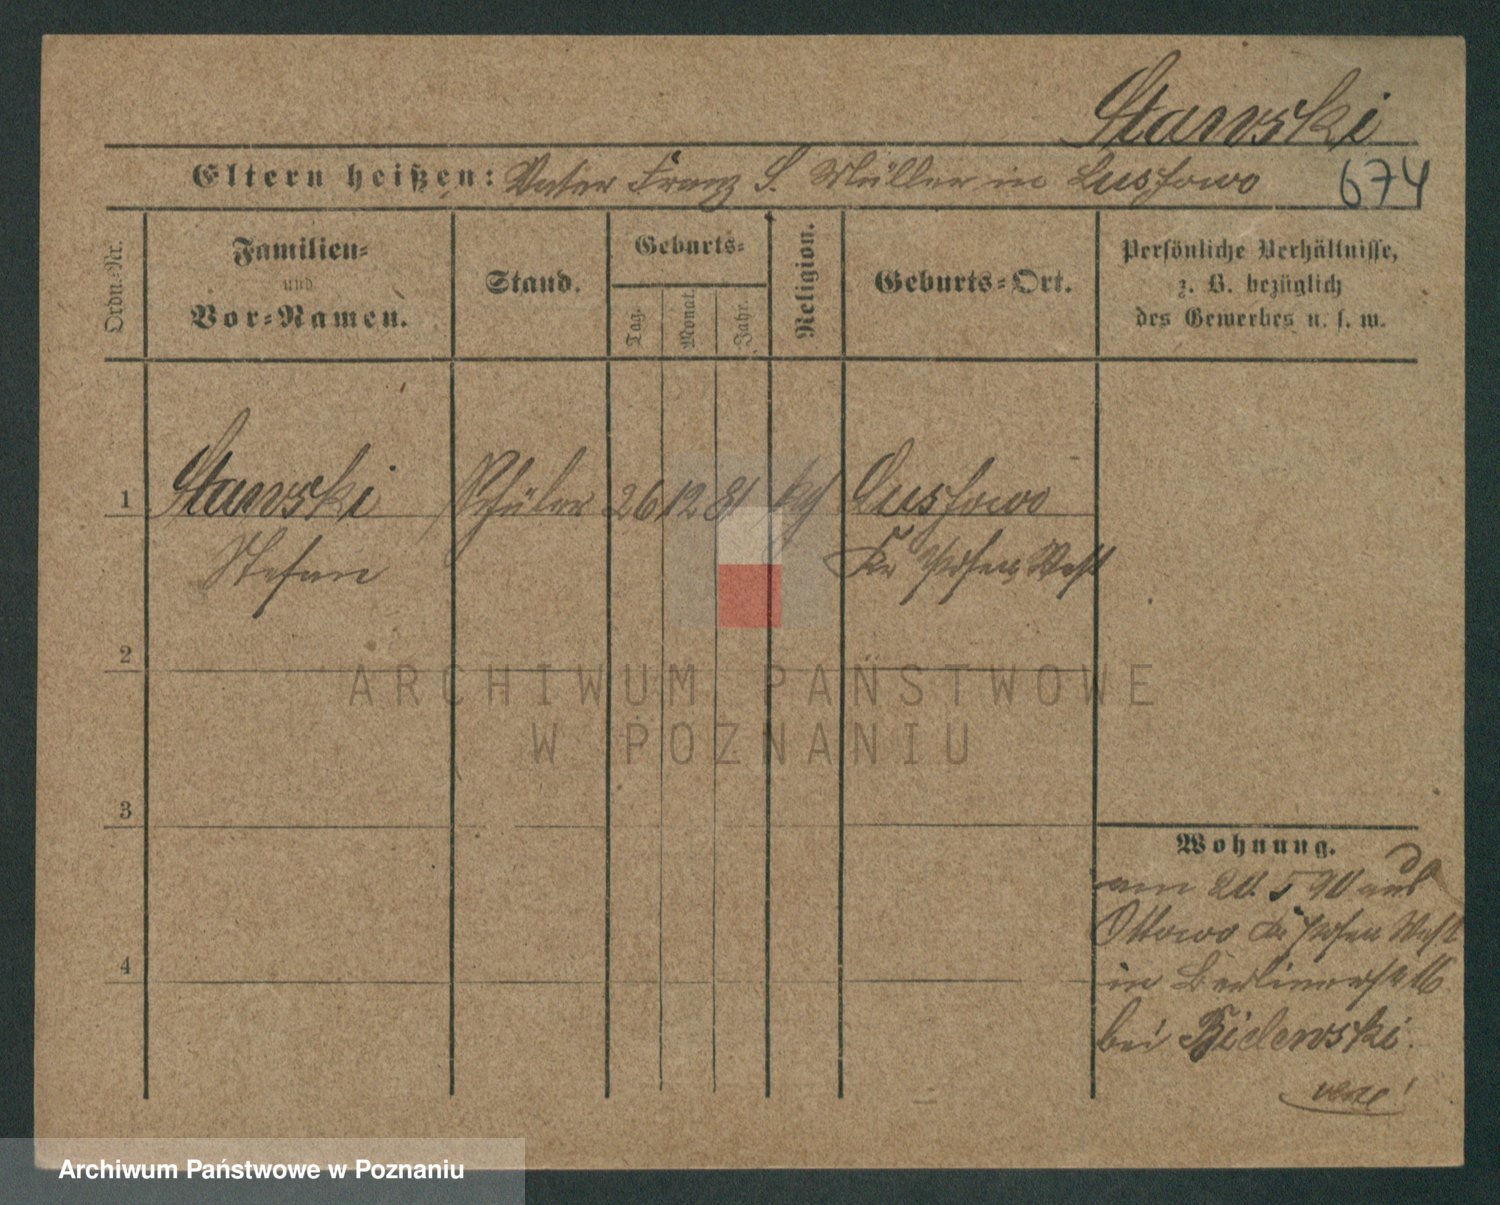 Stawski
674
Eltern heißen: Vater Franz S. Müller in Lussowo
Ordn.-Nr.
Familien-
und
Vor-Namen.
Stand.
Geburts-
Tag.
Monat.
Jahr.
Religion.
Geburts-Ort.
Persönliche Verhältnisse,
z. B. bezüglich
des Gewerbes u. s. w.
1
Stawski
Stefan
Schüler
26
12
81
kth
Lussowo
Kr Posen West
2
3
4
Wohnung.
am 20. 5 90 aus
Ottowo Kr Posen West
in Berlinerstr 16
bei
ARCHIWUM PAŃSTWOWE
W POZNANIU
Archiwum Państwowe w Poznaniu